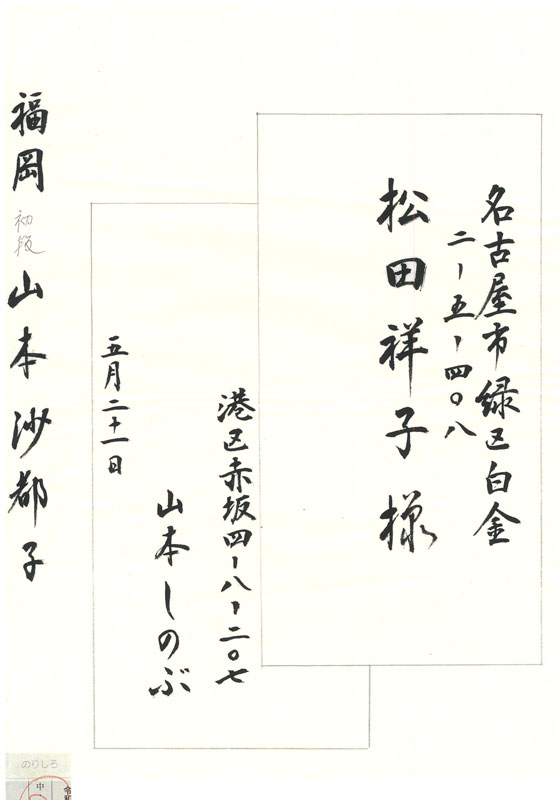 名古屋市緑区白金
二ー五ー四〇八
松田祥子様
港区赤坂四ー八ー二〇七
山本しのぶ
五月二十一日
福岡 初段 山本沙都子
のりしろ
中
令和